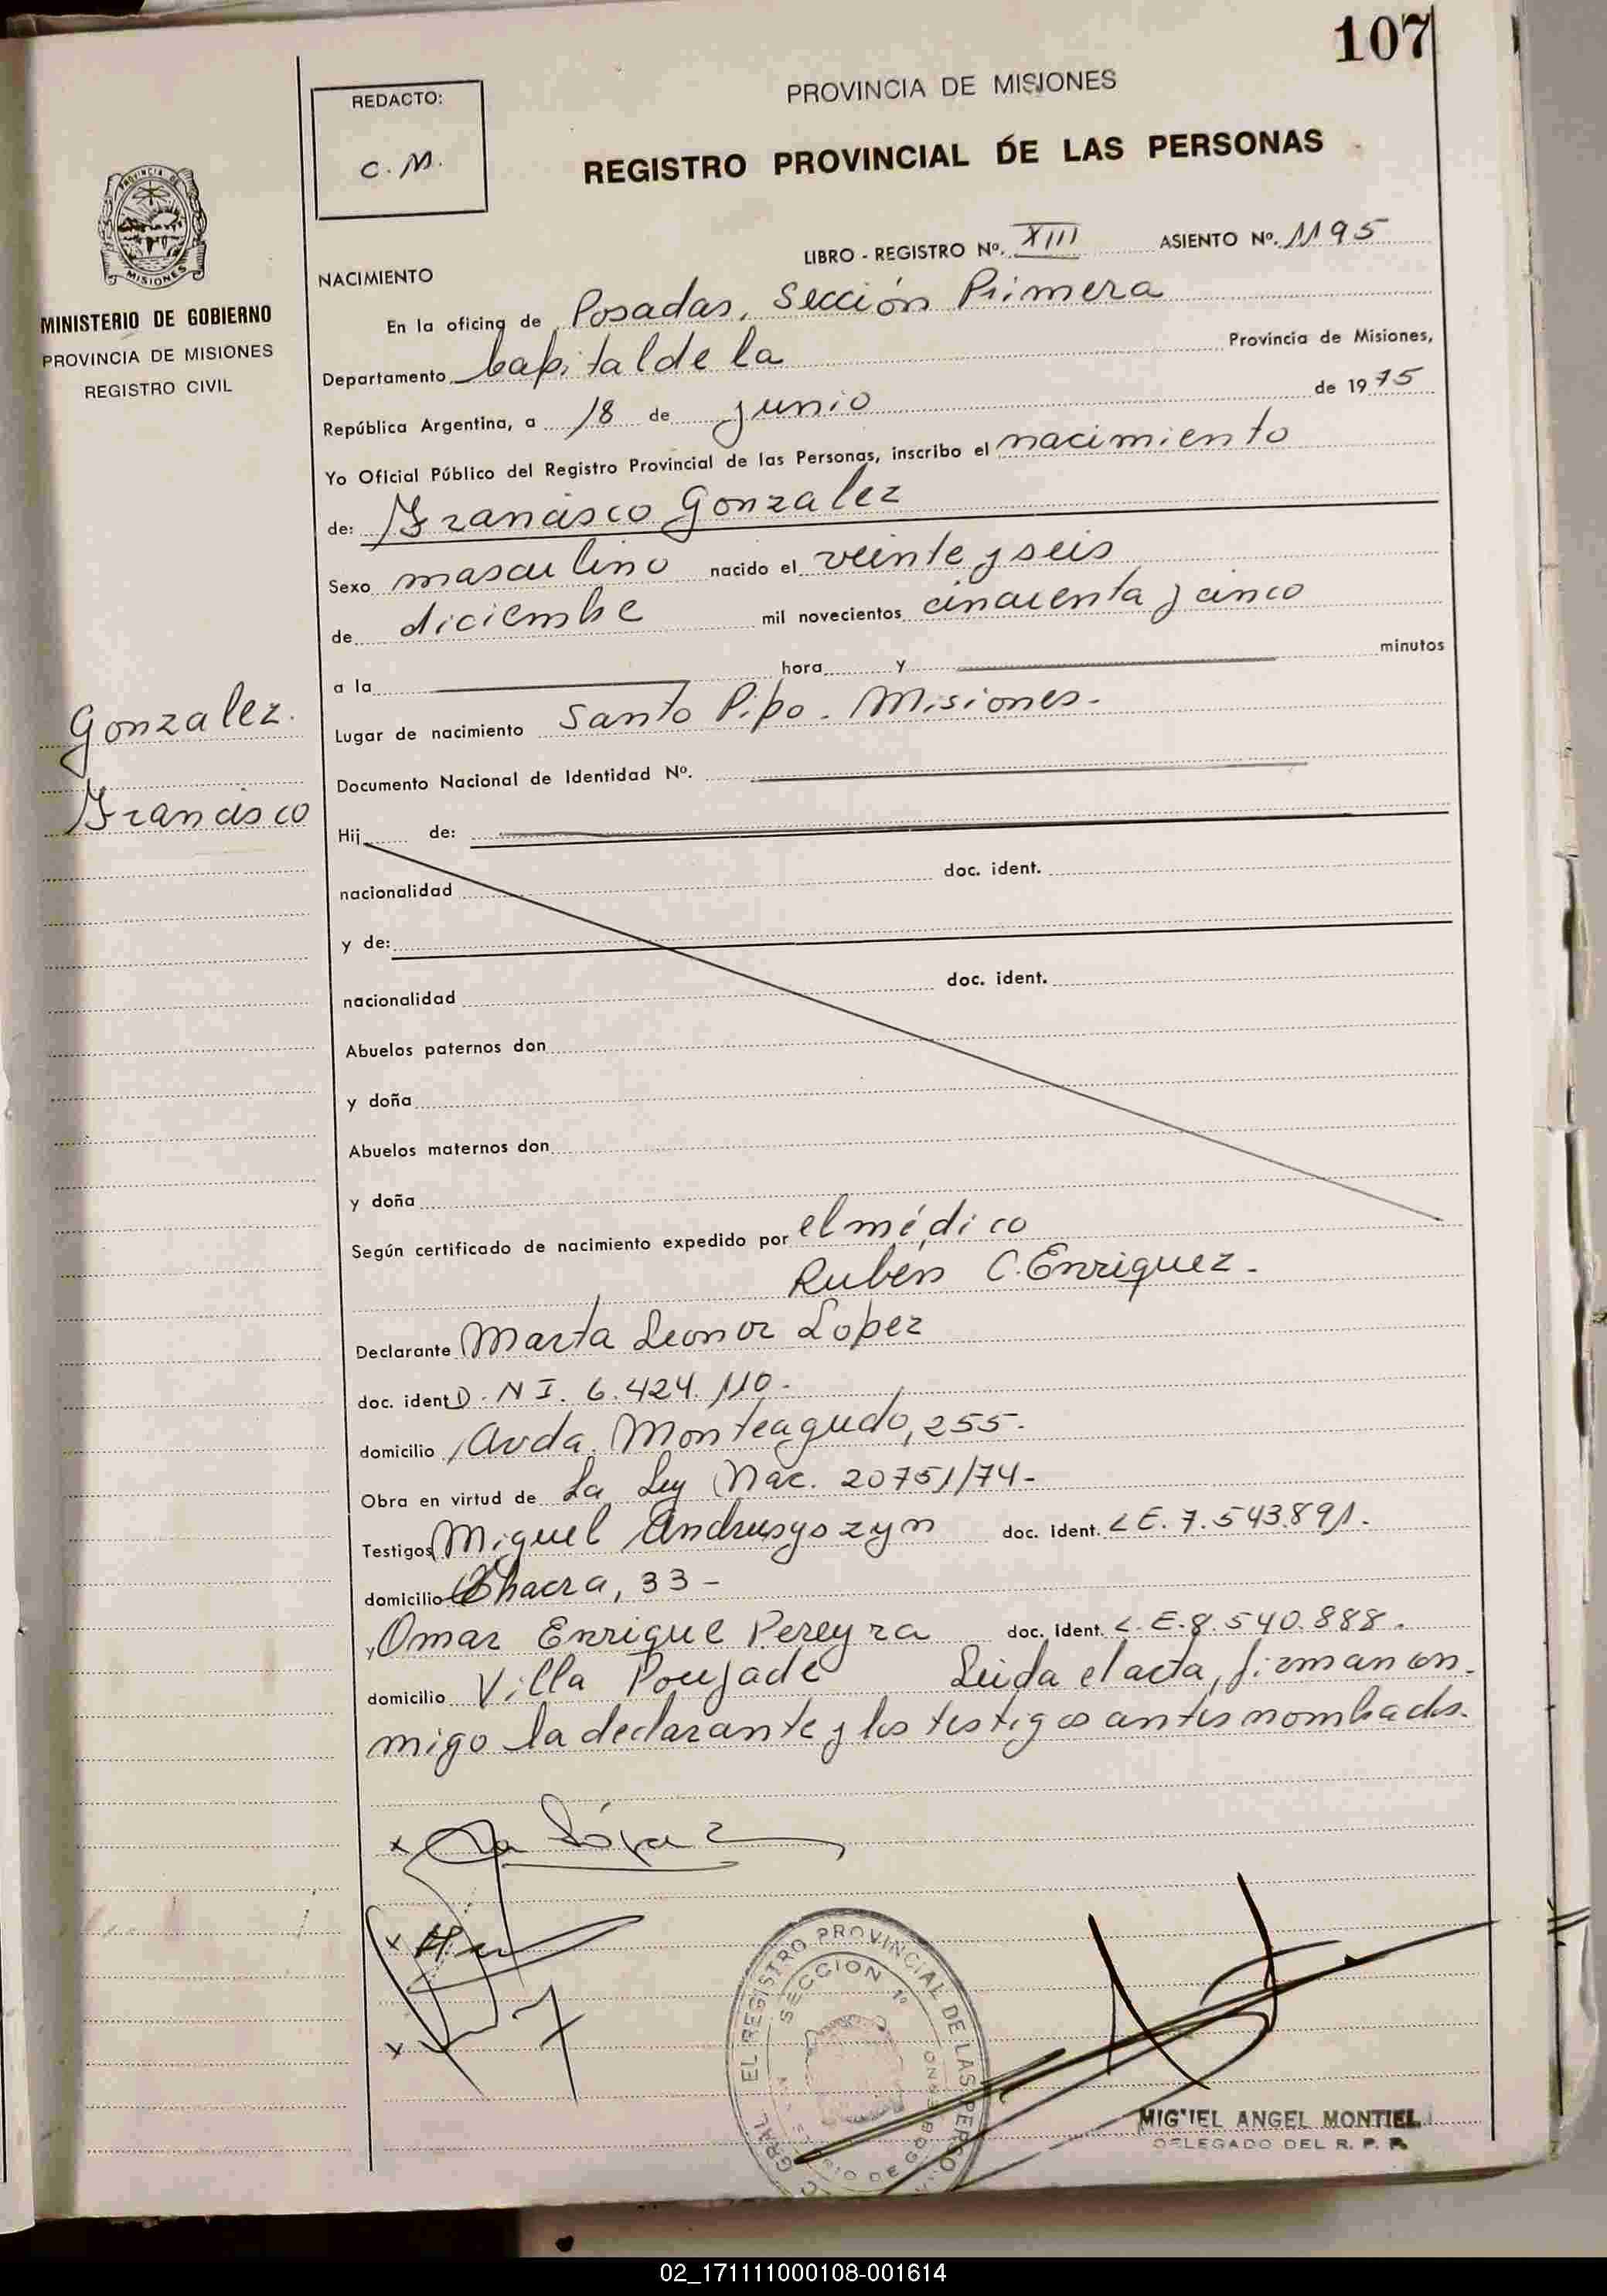 107
REDACTO:
C. M.
PROVINCIA DE MISIONES
REGISTRO PROVINCIAL DE LAS PERSONAS
PROVINCIA DE
MISIONES
MINISTERIO DE GOBIERNO
PROVINCIA DE MISIONES
REGISTRO CIVIL
LIBRO - REGISTRO Nº. XIII ASIENTO Nº. 1195
NACIMIENTO
En la oficina de Posadas, Sección Primera
Departamento Capital de la Provincia de Misiones,
República Argentina, a 18 de junio de 1975
Yo Oficial Público del Registro Provincial de las Personas, inscribo el nacimiento
de: Francisco Gonzalez
Sexo masculino nacido el veinte y seis
de diciembre mil novecientos cincuenta y cinco
a la hora y minutos
Lugar de nacimiento Santo Pipo. Misiones.-
Gonzalez.
Francisco
Documento Nacional de Identidad Nº.
Hij de:
nacionalidad doc. ident.
y de:
nacionalidad doc. ident.
Abuelos paternos don
y doña
Abuelos maternos don
y doña
Según certificado de nacimiento expedido por el médico
Rubén C. Enriquez.-
Declarante Marta Leonor Lopez
doc. ident D.N I. 6.424.110.-
domicilio Avda. Monteagudo, 255.-
Obra en virtud de La Ley Nac. 20751/74-
Testigos Miguel Andrusyszyn doc. ident. L E. 7.543.891.
domicilio Chacra, 33-
y Omar Enrique Pereyra doc. ident. L. E. 8.540.888.
domicilio Villa Poujade Leida el acta, firman con-
migo la declarante y los testigos antes nombrados.
EL REGISTRO PROVINCIAL DE LAS PERSO
SECCION 1º
MIGUEL ANGEL MONTIEL
DELEGADO DEL R. P. P.
02_171111000108-001614